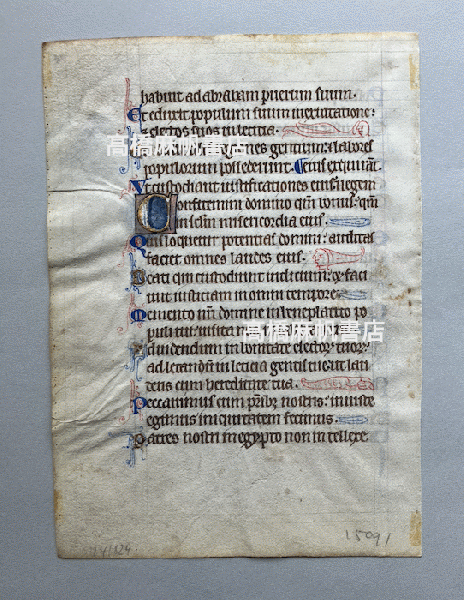 habuit ad abraham puerum suum.
Et eduxit populum suum in exultatione:
⁊ electos suos in letitia.
regiones gentium: ⁊ labores
populorum possederunt.
Ut custodiant iustificationes eius:
Confitemini domino qm̄ bonus: qm̄
in sclm̄ misericordia eius.
Quis loquetur potentias domini: auditas
faciet omnes laudes eius.
Beati qui custodiunt iudicium: ⁊ faci
unt iusticiam in omni tempore.
Memento nr̄i domine in beneplacito po
puli tui: uisita nos
Ad uidendum in bonitate electorum tuorum:
ad letandum in letitia gentis tue: ut lau
deris cum hereditate tua.
Peccauimus cum patribus nostris: iniuste
egimus iniquitatem fecimus.
Patres nostri in egypto non intellexe
高橋麻帆書店
高橋麻帆書店
15091